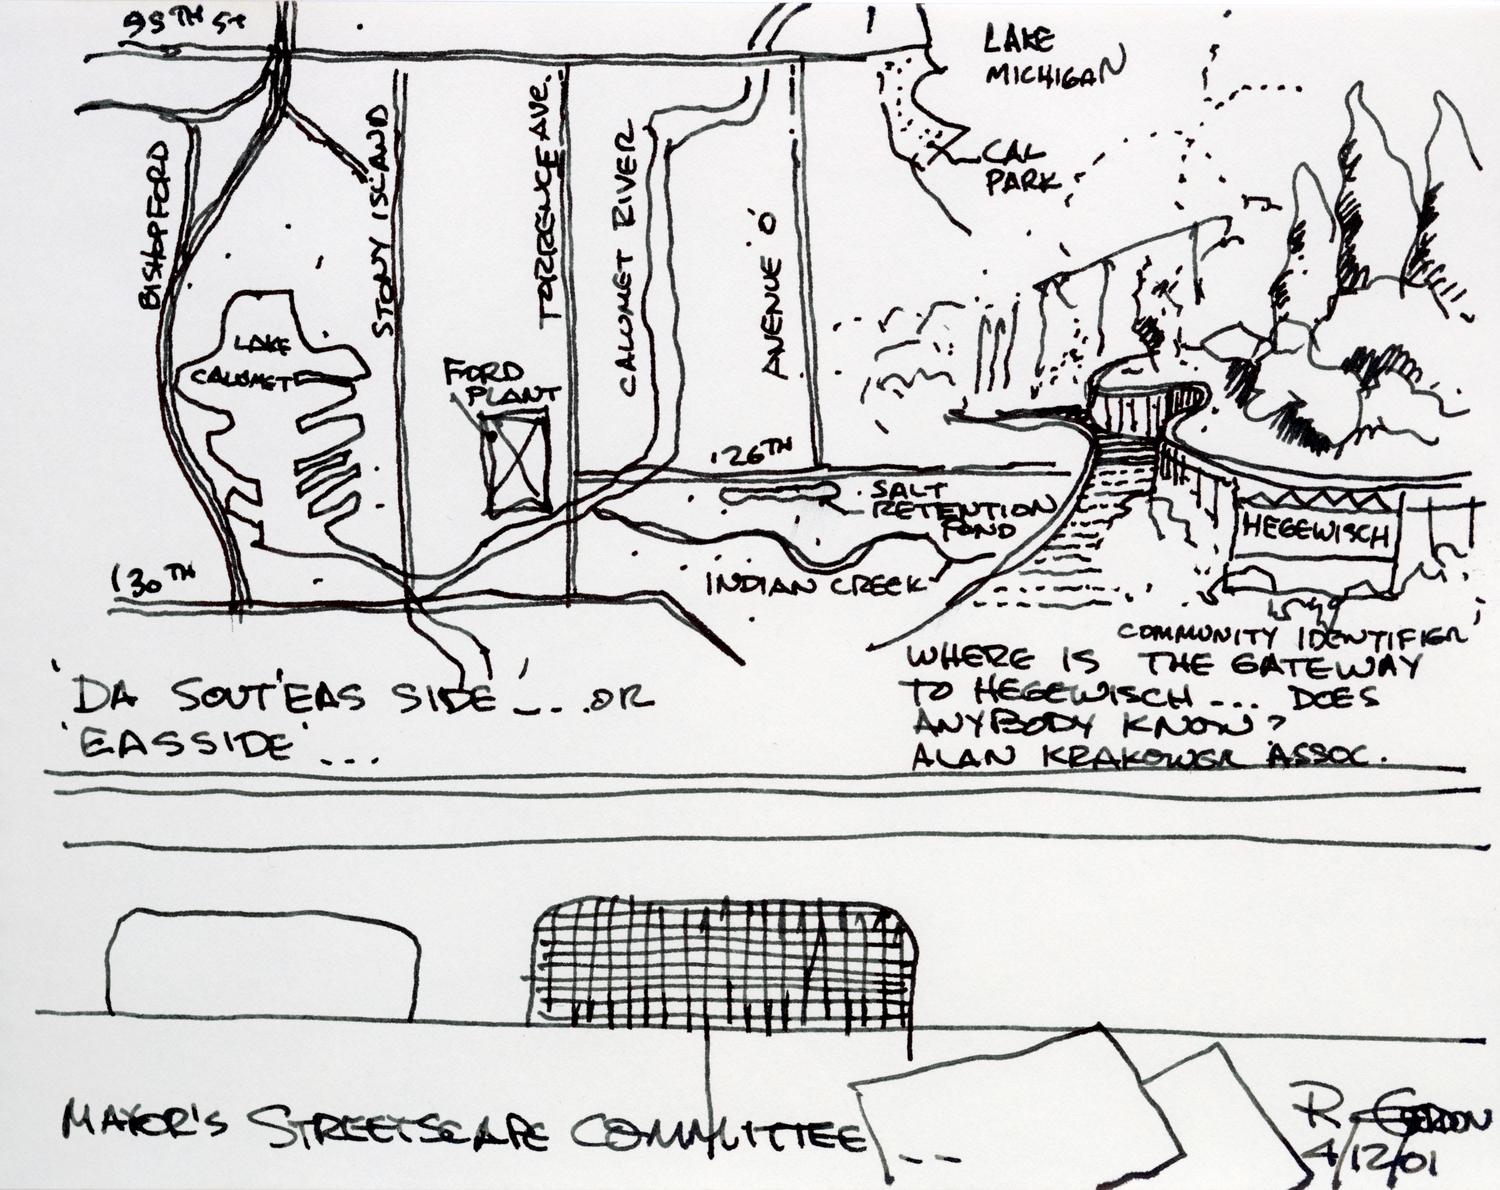 95TH ST
LAKE
MICHIGAN
CAL
PARK
BISHOPFORD
STONY ISLAND
TORRENCE AVE.
CALUMET RIVER
AVENUE 'O'
LAKE
CALUMET
FORD
PLANT
126TH
SALT
RETENTION
POND
INDIAN CREEK
HEGEWISCH
130TH
COMMUNITY IDENTIFIER
'DA SOUT'EAS SIDE' ... OR
'EASSIDE' ...
WHERE IS THE GATEWAY
TO HEGEWISCH ... DOES
ANYBODY KNOW?
ALAN KRAKOWER ASSOC.
MAYOR'S STREETSCAPE COMMITTEE
R. GORDON
4/12/01